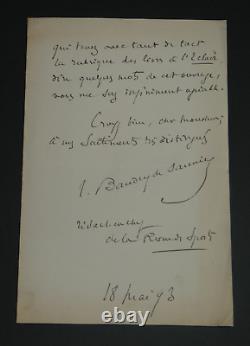 qui tenez avec tant de tact
la rubrique des livres à l'Eclair
dire quelques mots de cet ouvrage,
vous me ferez infiniment agréable.
Croyez bien, cher monsieur,
à mes Sentiments très distingués
L. Baudry de Saunier
rédacteur
de la Revue des Sports
18 mai 93
ebay.com